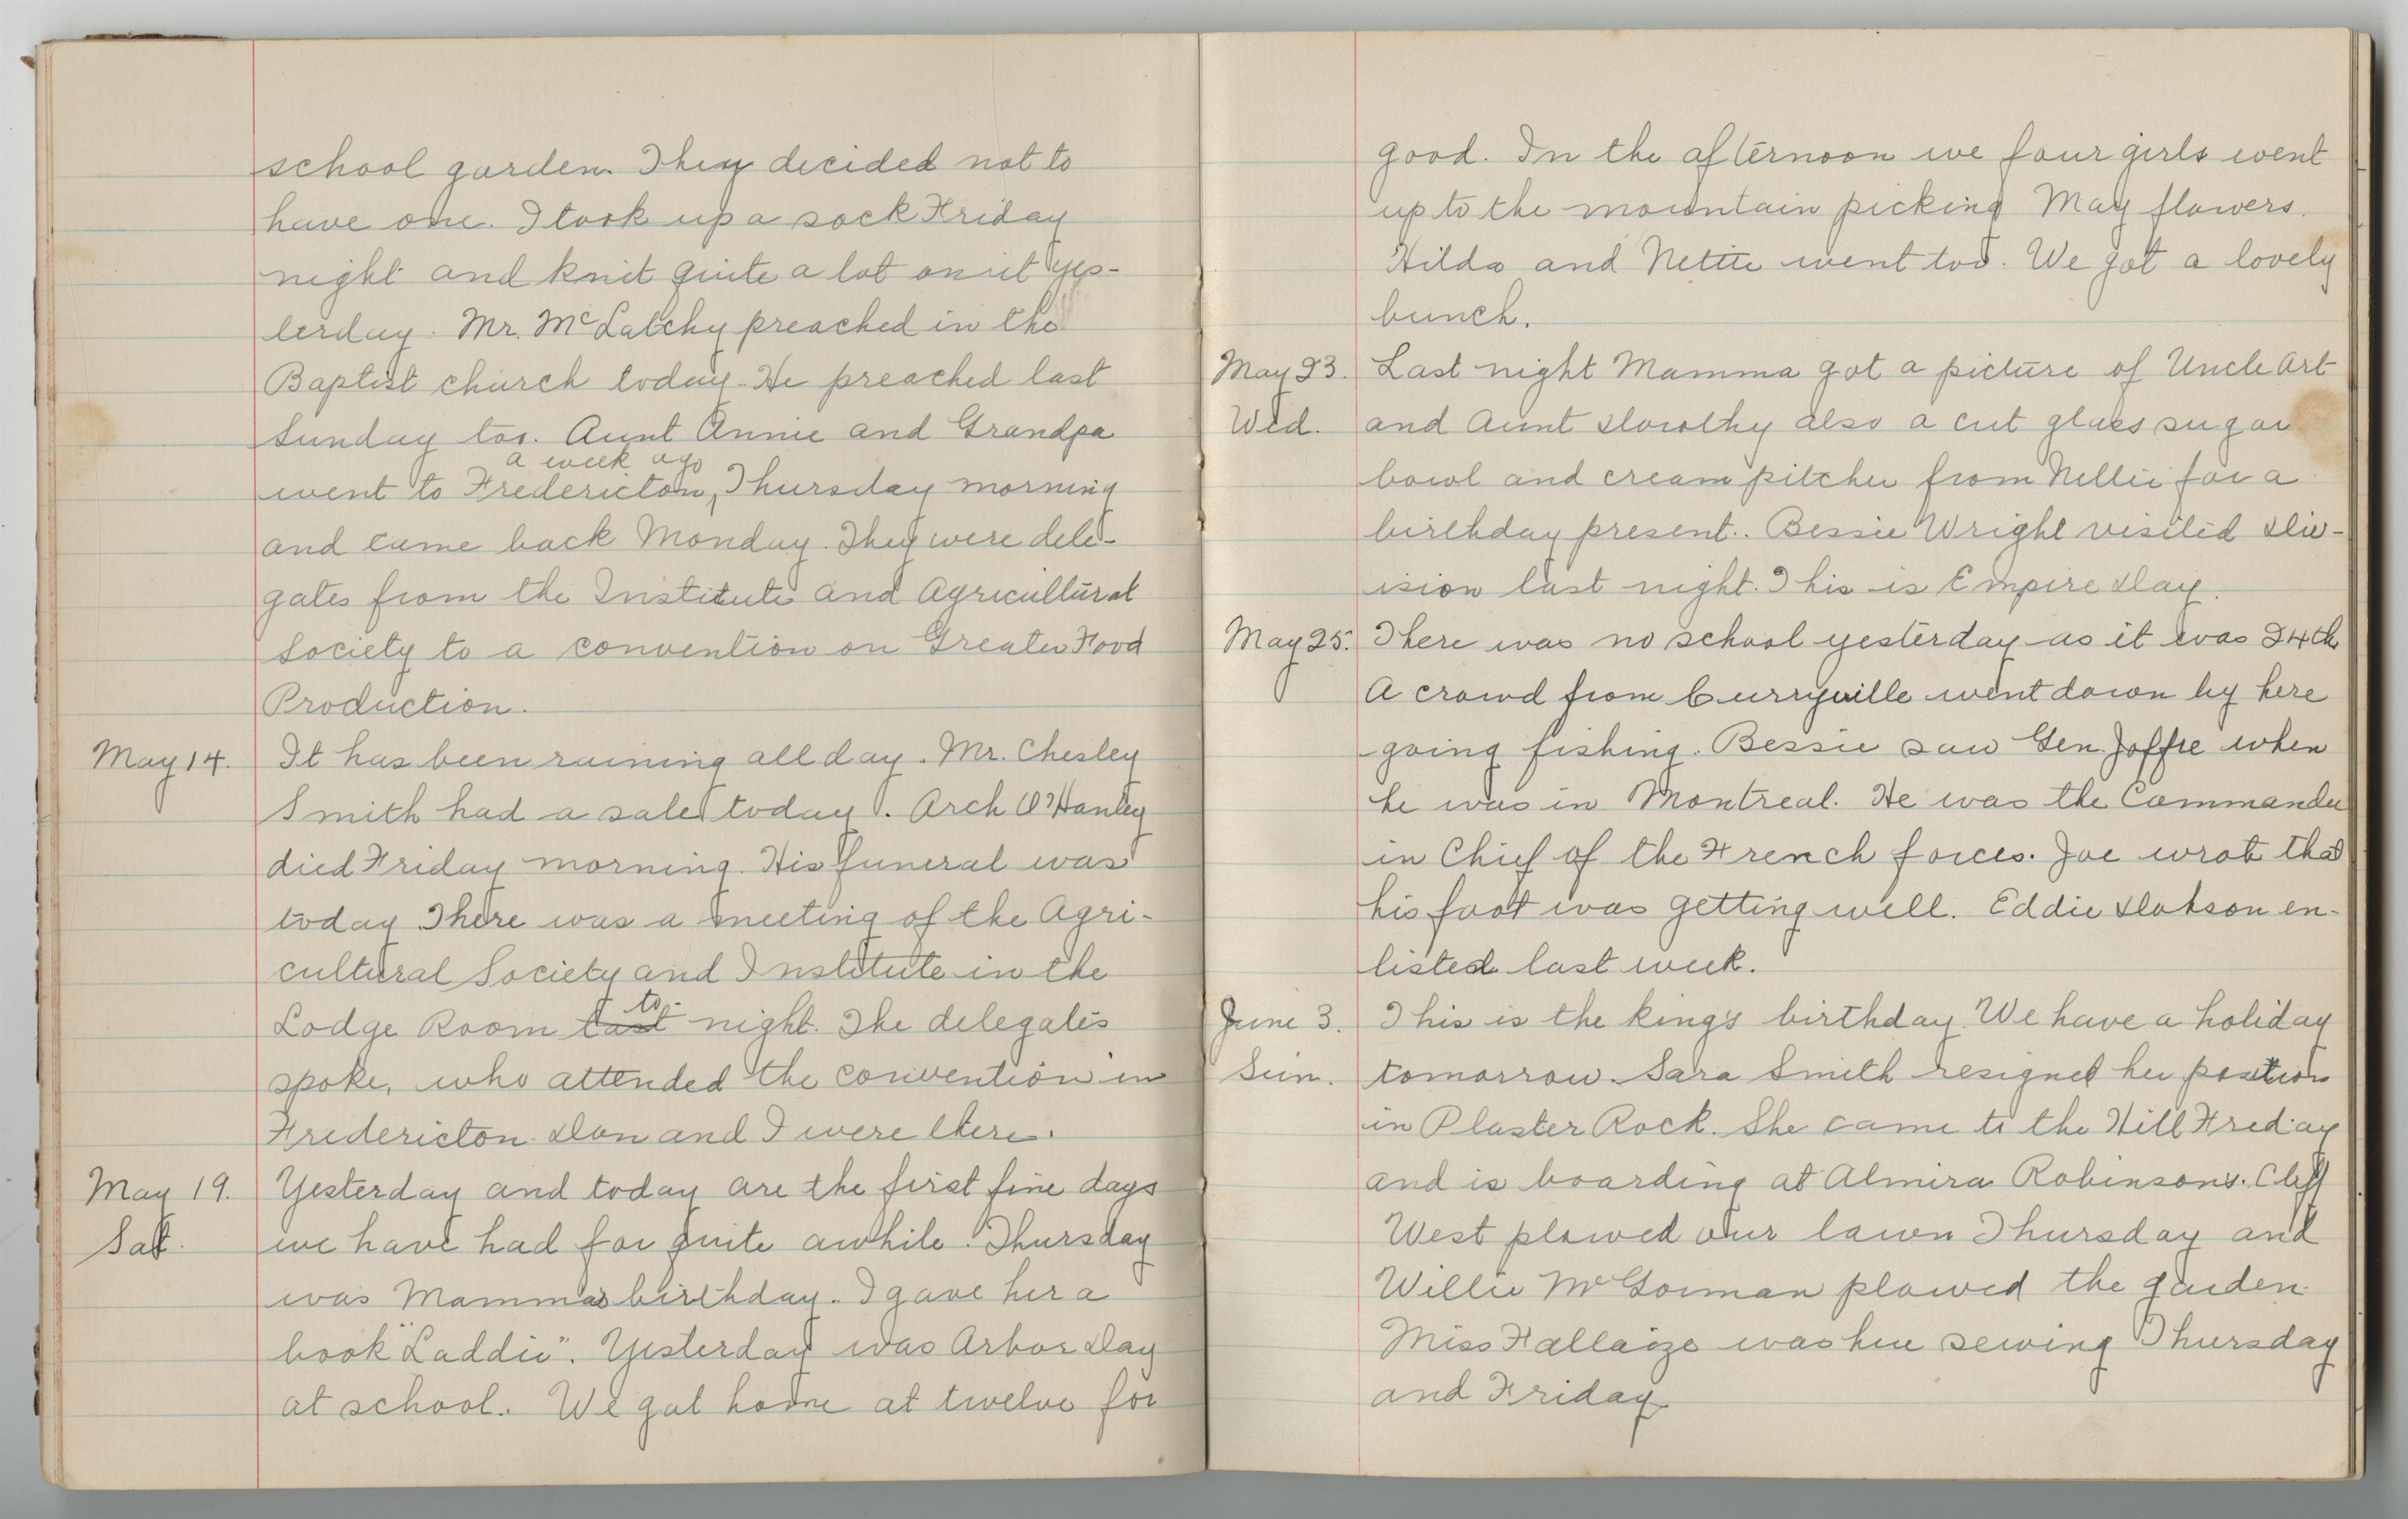 school garden. They decided not to
have one. I took up a sock Friday
night and knit quite a lot on it yes-
terday. Mr. McLatchy preached in the
Baptist church today. He preached last
Sunday too. Aunt Annie and Grandpa
a week ago
went to Fredericton, Thursday morning
and came back Monday. They were dele-
gates from the Institute and Agricultural
Society to a convention on Greater Food
Production.
May 14. It has been raining all day. Mr. Chesley
Smith had a sale today. Arch O'Hanley
died Friday morning. His funeral was
today. There was a meeting of the Agri-
cultural Society and Institute in the
to-
Lodge Room last night. The delegates
spoke, who attended the convention in
Fredericton. Don and I were there.
May 19. Yesterday and today are the first fine days
Sat. we have had for quite awhile. Thursday
was Mammas birthday. I gave her a
book "Laddie". Yesterday was Arbor Day
at school. We got home at twelve for
good. In the afternoon we four girls went
up to the mountain picking May flowers.
Hilda and Nettie went too. We got a lovely
bunch.
May 23. Last night Mamma got a picture of Uncle Art
Wed. and Aunt Dorothy also a cut glass sugar
bowl and cream pitcher from Nellie for a
birthday present. Bessie Wright visited Div-
ision last night. This is Empire Day.
May 25. There was no school yesterday as it was 24th
A crowd from Curryville went down by here
going fishing. Bessie saw Gen. Joffre when
he was in Montreal. He was the Commander
in Chief of the French forces. Joe wrote that
his foot was getting well. Eddie Dobson en-
listed last week.
June 3. This is the king's birthday. We have a holiday
Sun. tomorrow. Sara Smith resigned her position
in Plaster Rock. She came to the Hill Friday
and is boarding at Almira Robinson's. Cliff
West plowed our lawn Thursday and
Willie McGorman plowed the garden.
Miss Fallaize was here sewing Thursday
and Friday